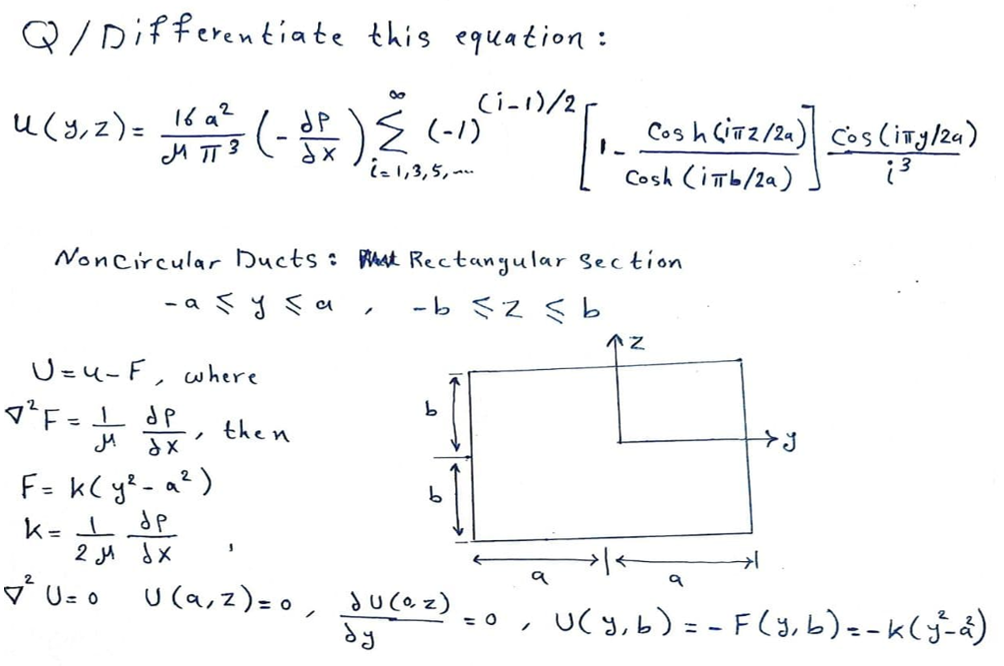 Q/Differentiate this equation:
u(y,z)= 16a²/μπ³ (-∂P/∂x) Σ_{i=1,3,5,...}^{∞} (-1)^{(i-1)/2} [1- Cosh(iπz/2a)/Cosh(iπb/2a)] Cos(iπy/2a)/i³
Noncircular Ducts: Rectangular Section
-a ≤ y ≤ a , -b ≤ z ≤ b
U=u-F, where
∇²F= 1/μ ∂P/∂x, then
F= k(y²-a²)
k= 1/2μ ∂P/∂x ,
z
y
b
b
a
a
∇²U=0 U(a,z)=0, ∂U(0,z)/∂y =0 , U(y,b)=-F(y,b)=-k(y²-a²)